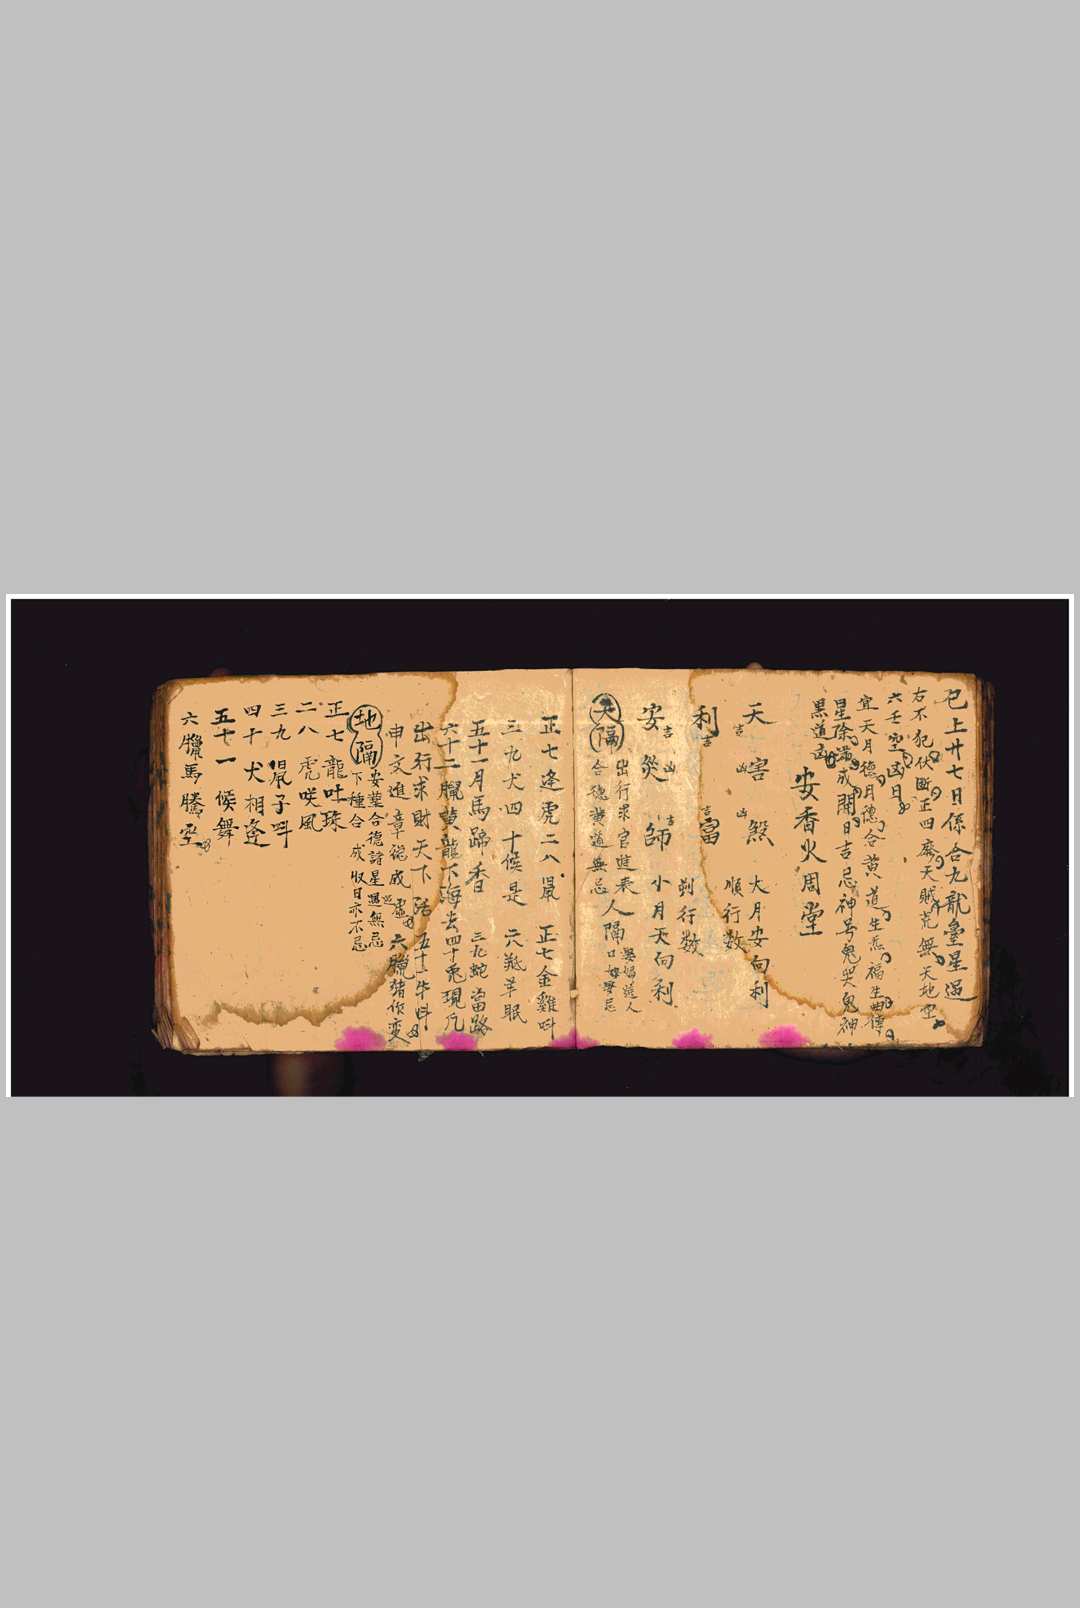 已上廿七日係合九龍皇星過
右不犯伏國正四廃天賊荒無天地空
六壬空凶日
宜天月德月德合黄道生炁福生曲傳
星除滿成開日吉忌神号鬼哭鬼神
黑道凶
安香火周堂
天 害 煞 大月安向利
吉 凶 凶 順行数
利 富 剃行数
吉 吉
安 災 師 小月天向利
吉 凶 吉
天隔
出行求官進表
合德黄道無忌
人隔
娶婚進人
口安忌
正七逢虎二八鼠 正七金雞呌
三九犬四十候是 六羝羊眠
五十一月馬蹄香 三九蛇當路
六十二臘黄龍下海去四十兎現凡
出行求財天下活 五十一牛呌
申文進章總成虛 六臘猪作変
地隔
安塟合德諸星照無忌
下種合成収日亦不忌
正七龍吐珠
二八虎咲風
三九鼠子呌
四十犬相逢
五十一候舞
六臘馬騰空